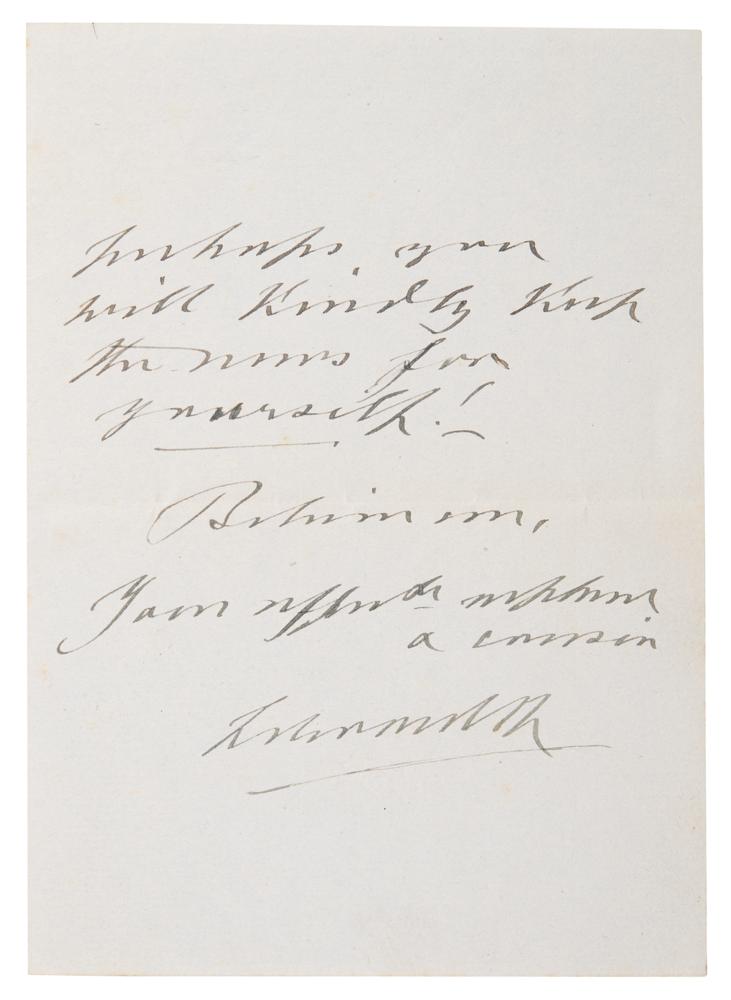 perhaps, you
will kindly keep
the news for
yourself!
Believe me,
Your affecte nephew
& cousin